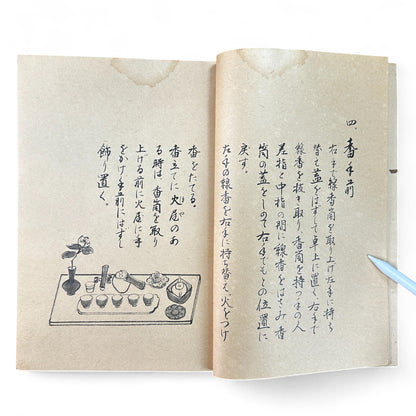 四、香手前
右手で線香筒を取り上げ左手に持ち
替え蓋をはずして卓上に置く、右手で
線香を抜き取り、香筒を持つ手の人
差指と中指の間に線香をはさみ香
筒の蓋をしめて右手でもとの位置に
戻す。
左手の線香を右手に持ち替え、火をつけ
香をたてる。
香立てに火屋のあ
る時は、香筒を取り
上げる前に火屋に手
をかけ手前にはずし
飾り置く。